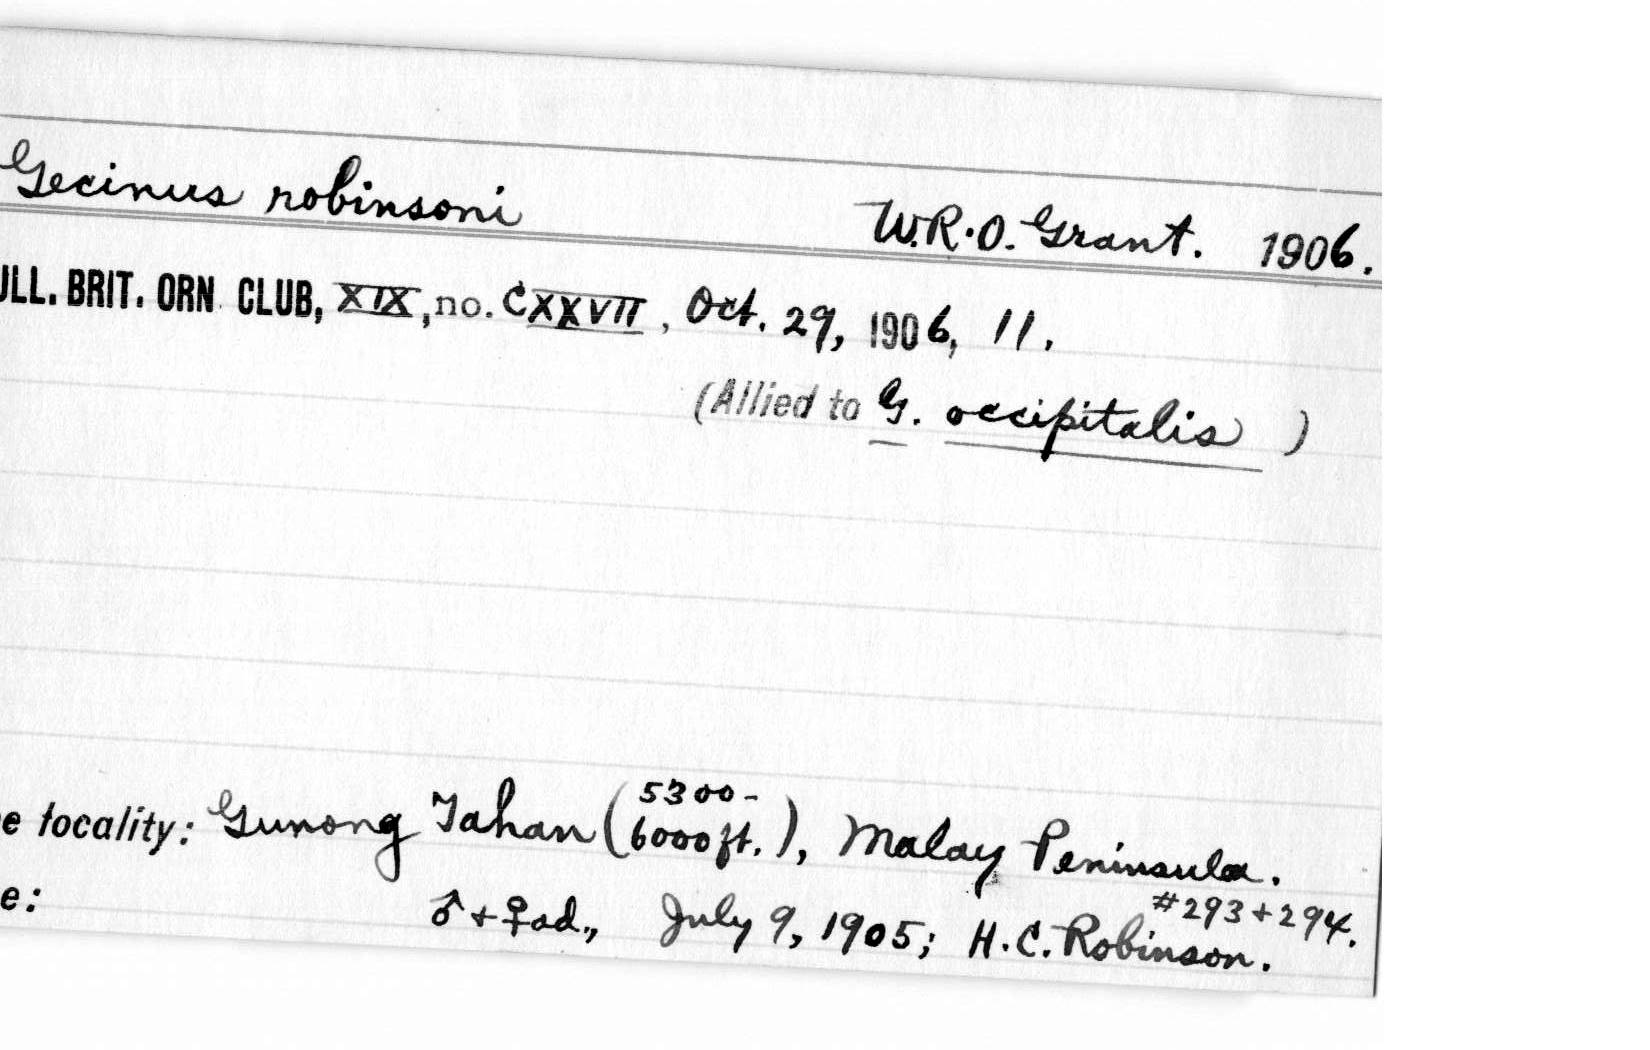 Gecinus robinsoni W.R.O. Grant. 1906.
ULL. BRIT. ORN. CLUB, XIX, no. CXXVII, Oct. 29, 1906, 11.
(Allied to G. occipitalis )
e locality: Gunong Tahan (5300-6000 ft.), Malay Peninsula.
#293+294.
e: ♂+♀ad., July 9, 1905; H.C. Robinson.